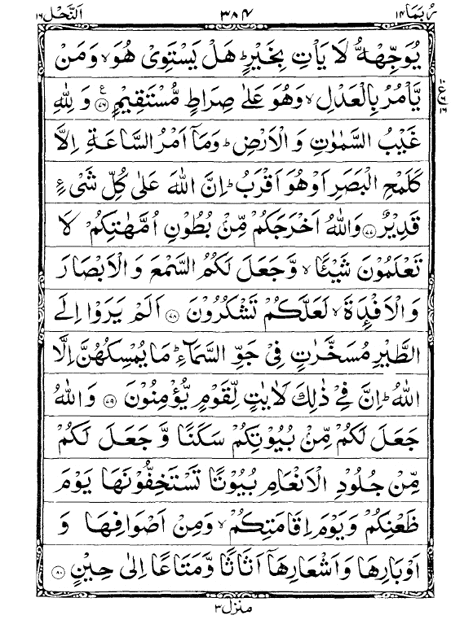 رُبَمَا ١٤ ٣٨٤ اَلنَّحْل ١٦
يُوَجِّهْهُّ لَا يَاْتِ بِخَيْرٍ ؕ هَلْ يَسْتَوِیْ هُوَ ۙ وَمَنْ
يَّاْمُرُ بِالْعَدْلِ ۙ وَهُوَ عَلٰی صِرَاطٍ مُّسْتَقِيْمٍ ﴿٧٦﴾ وَ لِلّٰهِ
غَيْبُ السَّمٰوٰتِ وَ الْاَرْضِ ؕ وَمَاۤ اَمْرُ السَّاعَةِ اِلَّا
كَلَمْحِ الْبَصَرِ اَوْ هُوَ اَقْرَبُ ؕ اِنَّ اللّٰهَ عَلٰی كُلِّ شَیْءٍ
قَدِيْرٌ ﴿٧٧﴾ وَاللّٰهُ اَخْرَجَكُمْ مِّنْۢ بُطُوْنِ اُمَّهٰتِكُمْ لَا
تَعْلَمُوْنَ شَيْـًٔا ۙ وَّ جَعَلَ لَكُمُ السَّمْعَ وَ الْاَبْصَارَ
وَ الْاَفْـِٕدَةَ ۙ لَعَلَّكُمْ تَشْكُرُوْنَ ﴿٧٨﴾ اَلَمْ يَرَوْا اِلَی
الطَّيْرِ مُسَخَّرٰتٍ فِیْ جَوِّ السَّمَآءِ ؕ مَا يُمْسِكُهُنَّ اِلَّا
اللّٰهُ ؕ اِنَّ فِیْ ذٰلِكَ لَاٰيٰتٍ لِّقَوْمٍ يُّؤْمِنُوْنَ ﴿٧٩﴾ وَ اللّٰهُ
جَعَلَ لَكُمْ مِّنْۢ بُيُوْتِكُمْ سَكَنًا وَّ جَعَلَ لَكُمْ
مِّنْ جُلُوْدِ الْاَنْعَامِ بُيُوْتًا تَسْتَخِفُّوْنَهَا يَوْمَ
ظَعْنِكُمْ وَ يَوْمَ اِقَامَتِكُمْ ۙ وَمِنْ اَصْوَافِهَا وَ
اَوْبَارِهَا وَ اَشْعَارِهَاۤ اَثَاثًا وَّ مَتَاعًا اِلٰی حِيْنٍ ﴿٨٠﴾
منزل ٣